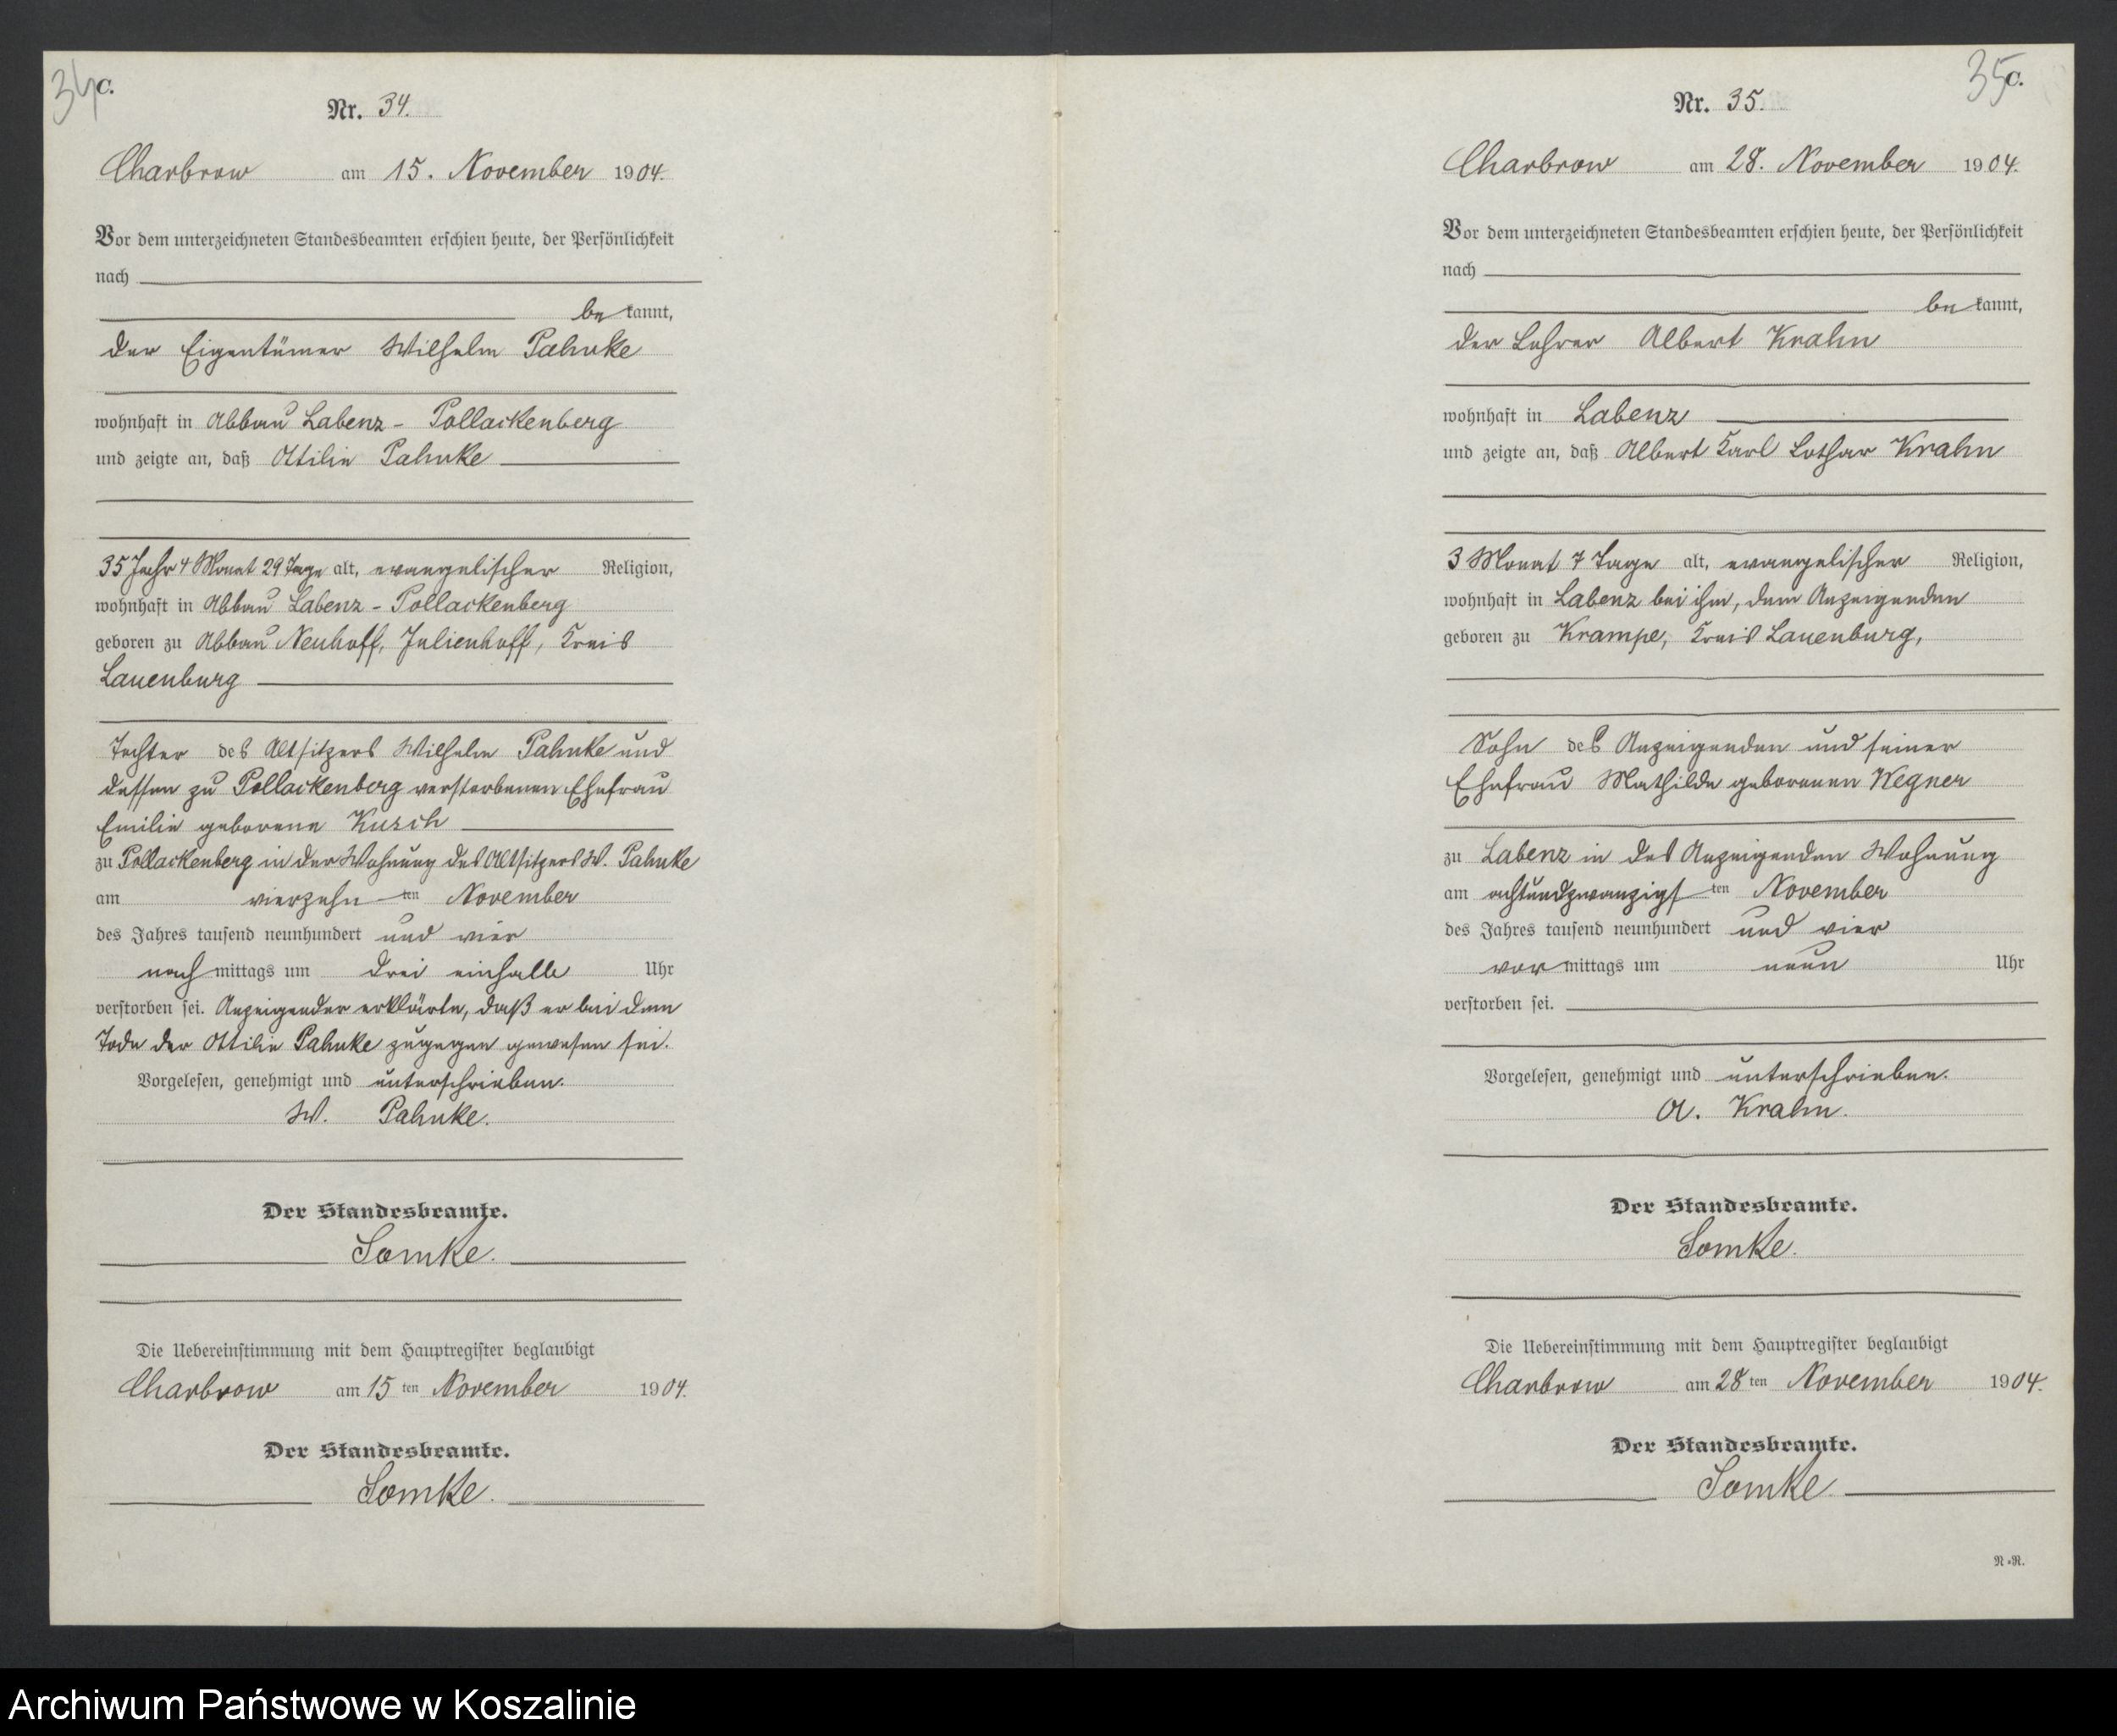 34
C.
Nr. 34.
Charbrow am 15. November 1904.
Vor dem unterzeichneten Standesbeamten erschien heute, der Persönlichkeit
nach
be kannt,
der Eigentümer Wilhelm Pahnke
wohnhaft in Abbau Labenz - Pollackenberg
und zeigte an, daß Ottilie Pahnke
35 Jahr 4 Monat 29 Tage alt, evangelischer Religion,
wohnhaft in Abbau Labenz - Pollackenberg
geboren zu Abbau Neuhoff, Julienhoff, Kreis
Lauenburg
Tochter des Altsitzers Wilhelm Pahnke und
dessen zu Pollackenberg verstorbenen Ehefrau
Emilie geborene Kusch
zu Pollackenberg in der Wohnung des Altsitzers W. Pahnke
am vierzehn ten November
des Jahres tausend neunhundert und vier
nach mittags um drei einhalb Uhr
verstorben sei. Anzeigender erklärte, daß er bei dem
Tode der Ottilie Pahnke zugegen gewesen sei.
Vorgelesen, genehmigt und unterschrieben.
W. Pahnke.
Der Standesbeamte.
Somke.
Die Uebereinstimmung mit dem Hauptregister beglaubigt
Charbrow am 15 ten November 1904.
Der Standesbeamte.
Somke.
35
C.
Nr. 35.
Charbrow am 28. November 1904.
Vor dem unterzeichneten Standesbeamten erschien heute, der Persönlichkeit
nach
be kannt,
der Lehrer Albert Krahn
wohnhaft in Labenz
und zeigte an, daß Albert Karl Lothar Krahn
3 Monat 7 Tage alt, evangelischer Religion,
wohnhaft in Labenz bei ihm, dem Anzeigenden
geboren zu Krampe, Kreis Lauenburg,
Sohn des Anzeigenden und seiner
Ehefrau Mathilde geborenen Wegner
zu Labenz in des Anzeigenden Wohnung
am achtundzwanzigs ten November
des Jahres tausend neunhundert und vier
vor mittags um neun Uhr
verstorben sei.
Vorgelesen, genehmigt und unterschrieben.
A. Krahn.
Der Standesbeamte.
Somke.
Die Uebereinstimmung mit dem Hauptregister beglaubigt
Charbrow am 28 ten November 1904.
Der Standesbeamte.
Somke.
N.-R.
Archiwum Państwowe w Koszalinie